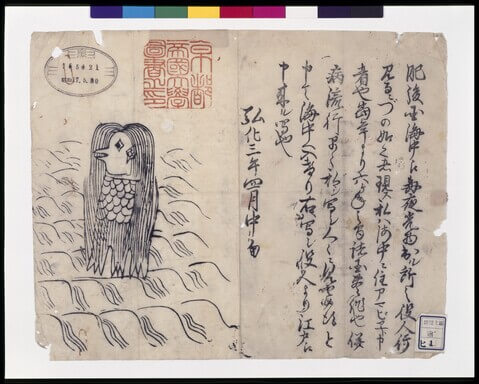 肥後国海中江毎夜光物出ル所之役人行
見るニづの如く者現ス私ハ海中ニ住アマビヱト申
者也當年より六ヶ年之間諸国豊作也併
病流行早々私ヲ写シ人々ニ見せ候得と
申て海中へ入けり右写シ役人より江戸江
申来ル写也
弘化三年四月中旬
京都
帝國大學
圖書之印